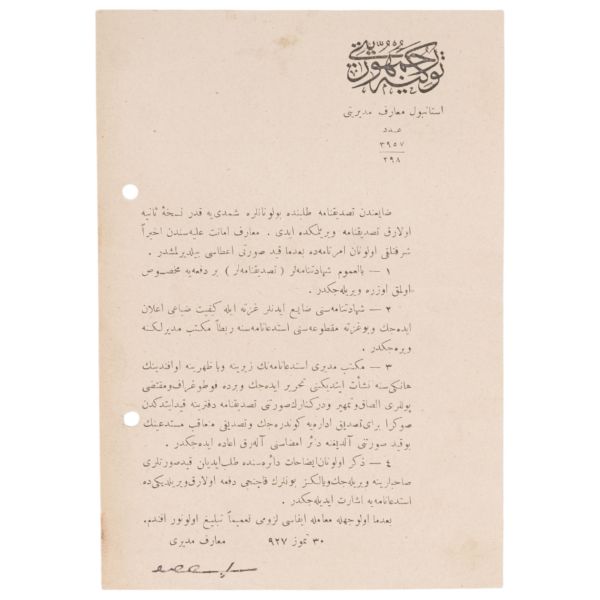 توركيه جمهوريتى
استانبول معارف مديريتى
عدد
٣٩٥٧
٢٩٨
ضايعدن تصديقنامه طلبنده بولونانلره شمدى‌يه قدر نسخهٔ ثانيه
اولارق تصديقنامه ويريلمكده ايدى . معارف امانت عليه‌سندن اخيراً
شرفتلقى اولونان امرنامه‌ده بعدما قيد صورتى اعطاسى بيلديرلمشدر .
١ — بالعموم شهادتنامه‌لر ( تصديقنامه‌لر ) بر دفعه‌يه مخصوص
اولمق اوزره ويريله‌جكدر .
٢ — شهادتنامه‌سنى ضايع ايدنلر غزته ايله كيفيت ضياعى اعلان
ايده‌جك وبو غزته مقطوعه‌سنى استدعانامه‌سنه ربطاً مكتب مديرلكنه
ويره‌جكدر .
٣ — مكتب مديرى استدعانامه‌نك زيرينه ويا ظهرينه او افندينك
هانكى سنه نشأت ايتديكنى تحرير ايده‌جك وبرده فوطوغراف ومقتضى
پوللرى الصاق وتمهير ودركنارك صورتنى تصديقنامه دفترينه قيد ايتدكدن
صوكرا براى تصديق اداره‌يه كوندره‌جك وتصديقى معاقب مستدعينك
بو قيد صورتنى آلديغنه دائر امضاسنى آله‌رق اعاده ايده‌جكدر .
٤ — ذكر اولونان ايضاحات دائره‌سنده طلب ايديلن قيد صورتلرى
صاحبلرينه ويريله‌جك ويالكز بونلرك قاچنجى دفعه اولارق ويريلديكى ده
استدعانامه‌يه اشارت ايديله‌جكدر .
بعدما اولوجهله معامله ايفاسى لزومى تعميماً تبليغ اولونور افندم .
٣٠ تموز ٩٢٧ معارف مديرى